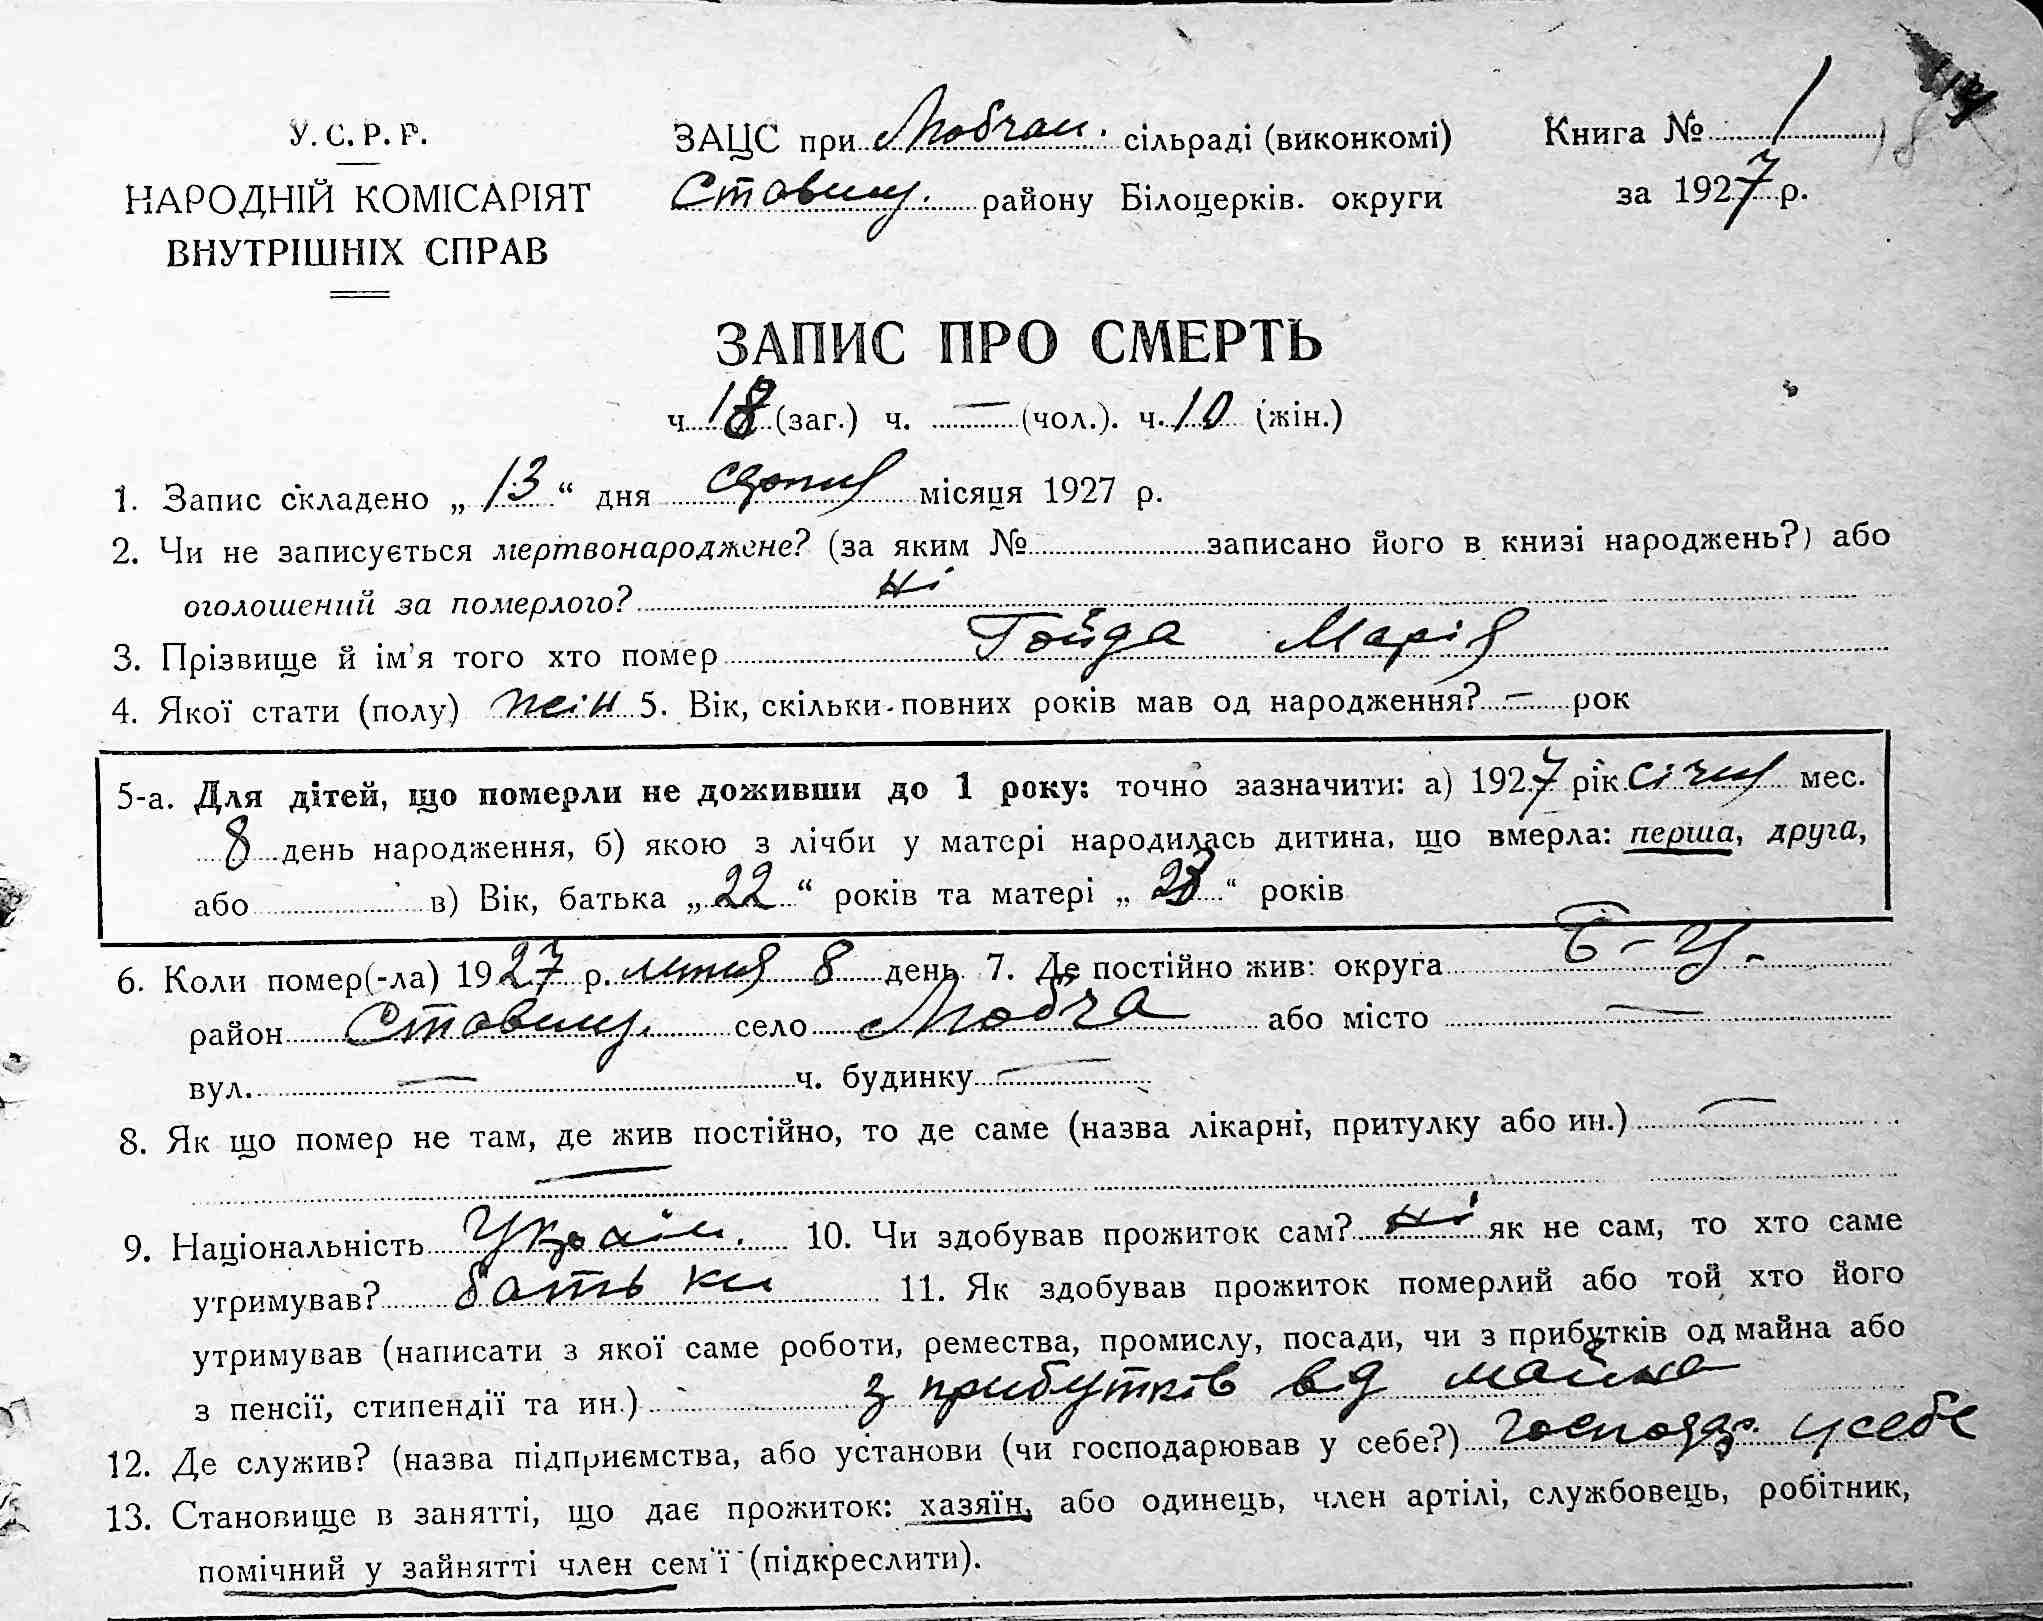 У. С. Р. Р.
НАРОДНІЙ КОМІСАРІЯТ
ВНУТРІШНІХ СПРАВ
ЗАЦС при Любчан. сільраді (виконкомі)
Ставищ. району Білоцерків. округи
Книга № 1
за 1927 р.
ЗАПИС ПРО СМЕРТЬ
ч. 18 (заг.) ч. — (чол.). ч. 10 (жін.)
1. Запис складено „ 13 “ дня серпня місяця 1927 р.
2. Чи не записується мертвонароджене? (за яким № записано його в книзі народжень?) або
оголошений за померлого? Ні
3. Прізвище й ім'я того хто помер Гойда Марія
4. Якої стати (полу) жін 5. Вік, скільки повних років мав од народження? — рок
5-а. Для дітей, що померли не доживши до 1 року: точно зазначити: а) 1927 рік січня мес.
8 день народження, б) якою з лічби у матері народилась дитина, що вмерла: перша, друга,
або в) Вік, батька „ 22 “ років та матері „ 23 “ років
6. Коли помер(-ла) 1927 р. липня 8 день 7. Де постійно жив: округа Б-Ц.
район Ставищ. село Любча або місто —
вул. — ч. будинку —
8. Як що помер не там, де жив постійно, то де саме (назва лікарні, притулку або ин.) —
—
9. Національність Україн. 10. Чи здобував прожиток сам? Ні як не сам, то хто саме
утримував? батьки 11. Як здобував прожиток померлий або той хто його
утримував (написати з якої саме роботи, ремества, промислу, посади, чи з прибутків од майна або
з пенсії, стипендії та ин.) з прибутків від майна
12. Де служив? (назва підприємства, або установи (чи господарював у себе?) господар. у себе
13. Становище в занятті, що дає прожиток: хазяїн, або одинець, член артілі, службовець, робітник,
помічний у зайнятті член сем'ї (підкреслити).